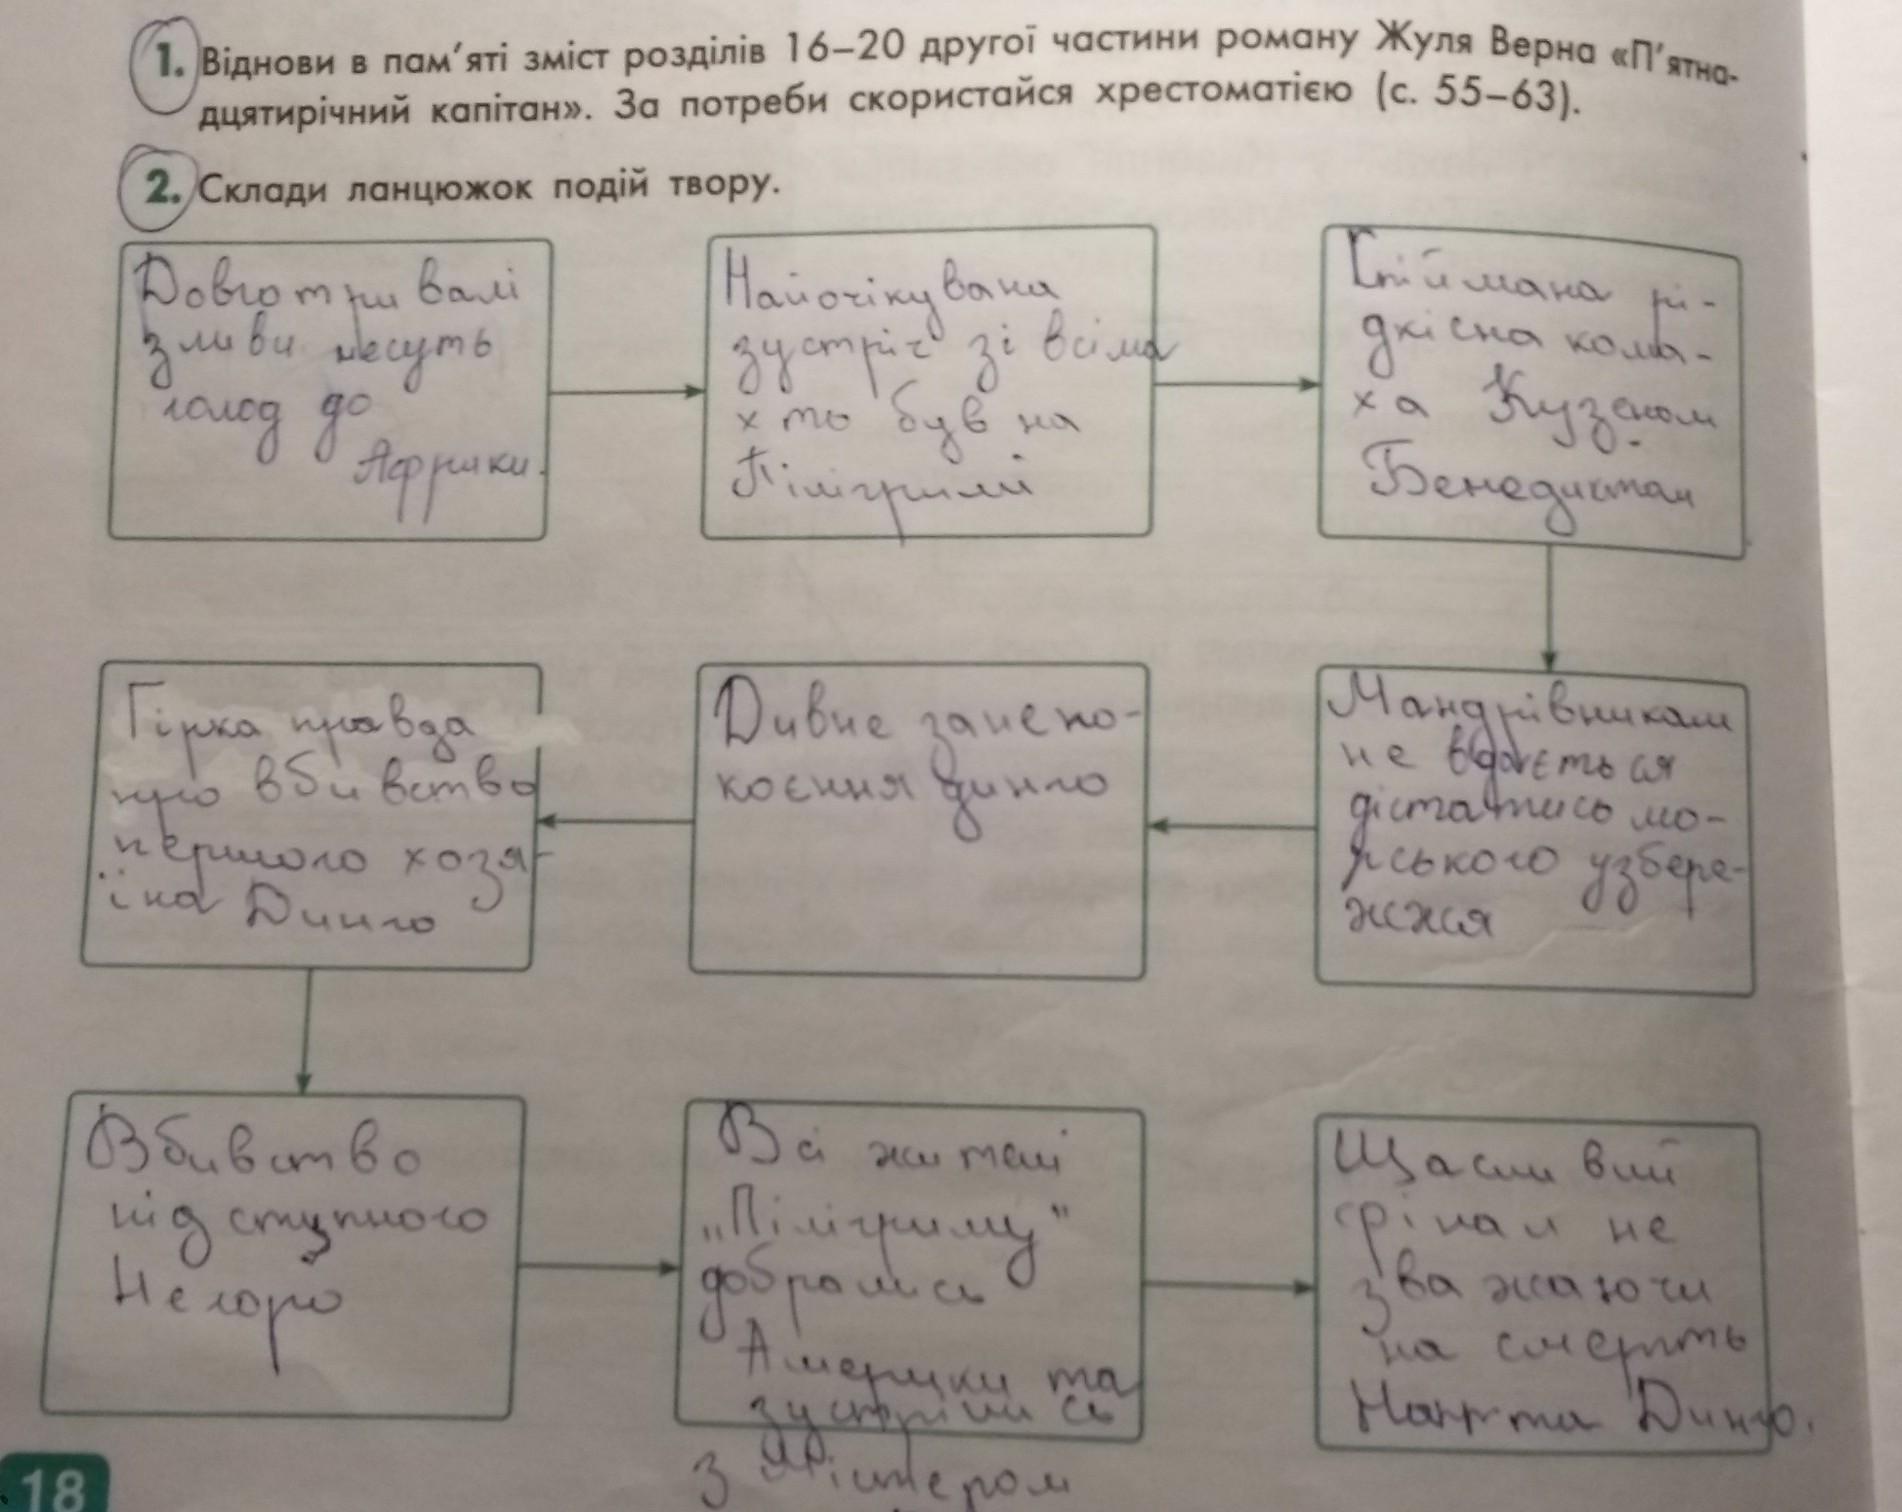 1. Віднови в пам'яті зміст розділів 16–20 другої частини роману Жуля Верна «П'ятна-
дцятирічний капітан». За потреби скористайся хрестоматією (с. 55–63).
2. Склади ланцюжок подій твору.
Довготривалі
зливи несуть
голод до
Африки.
Найочікувана
зустріч зі всіма
хто був на
Пілігримі
Спіймана рі-
дкісна кома-
ха Кузеном
Бенедиктом
Мандрівникам
не вдається
дістатись мо-
рського узбере-
жжя
Дивне занепо-
коєння динго
Гірка правда
про вбивство
першого хозя-
їна Динго
Вбивство
підступного
Негоро
Всі жителі
„Пілігриму"
добрались
Америки та
зустрілись
з Містером
Щасливий
фінал не
зважаючи
на смерть
та Динго.
18